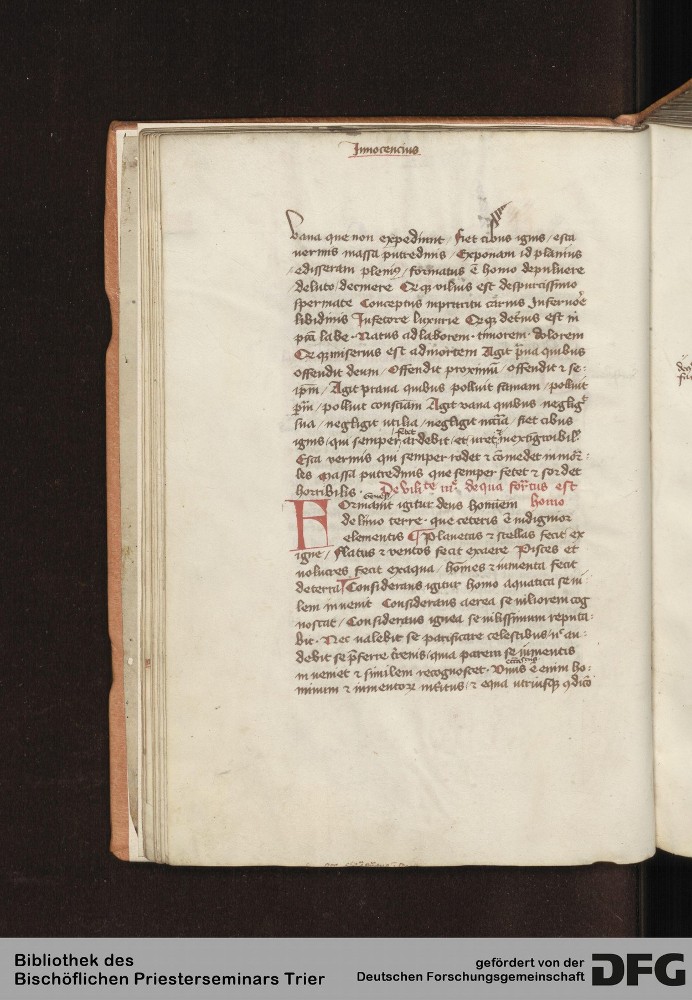 Innocencius
vana que non expediunt / fiet cibus ignis / esca
vermis massa putredinis / Exponam id planius
/ edisseram plenius / formatus ē homo de puluere
/ de luto / de cinere Ceqꝫ vilius est de spurcissimo
spermate Conceptus in pruritu carnis In feruore
libidinis In fetore luxurie Ceqꝫ deterius est in
pcti labe · Natus ad laborem · timorem · dolorem
Ceqꝫ miserius est ad mortem Agit praua quibus
offendit deum / Offendit proximū / offendit ⁊ se:
ipm̄ / Agit praua quibus polluit famam / polluit
/ polluit consciam Agit vana quibus negligit
sua / negligit vtilia / negligit fiet cibus
ignis / qui semper ardebit / et vret inextigwibil
Esca vermis qui semper rodet ⁊ comedet in mor:
les Massa putredinis que semper fetet ⁊ sordet
horribilis · de qua fortus est
homo
Formauit igitur deus hominem
de limo terre · que ceteris ē indignior
elementis Planetas ⁊ stellas fecit ex
igne / flatus ⁊ ventos fecit ex aere Pisces et
volucres fecit ex aqua / homēs ⁊ iumenta fecit
de terra Considerans igitur homo aquatica se vi
lem inuenit Considerans aerea se viliorem cog
noscat / Considerans ignea se vilissimum reputa:
bit · Nec valebit se parificare celestibus / au:
debit se pferre trenis / quia parem se iumentis
inueniet ⁊ similem recognoscet · Vnus ē enim ho:
minum ⁊ iumentorꝫ intitus / ⁊ equa vtriusqꝫ ꝯdicio
Bibliothek des
Bischöflichen Priesterseminars Trier
gefördert von der
Deutschen Forschungsgemeinschaft
DFG